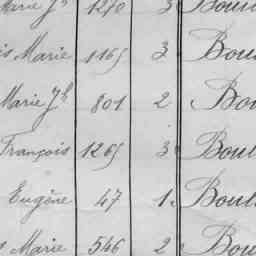 Marie Jh 1270 3 Boul
is Marie 1165 3 Boul
Marie Jh 801 2 Bou
François 1265 3 Boul
Eugène 47 1. Boul
s Marie 546 2 Boul